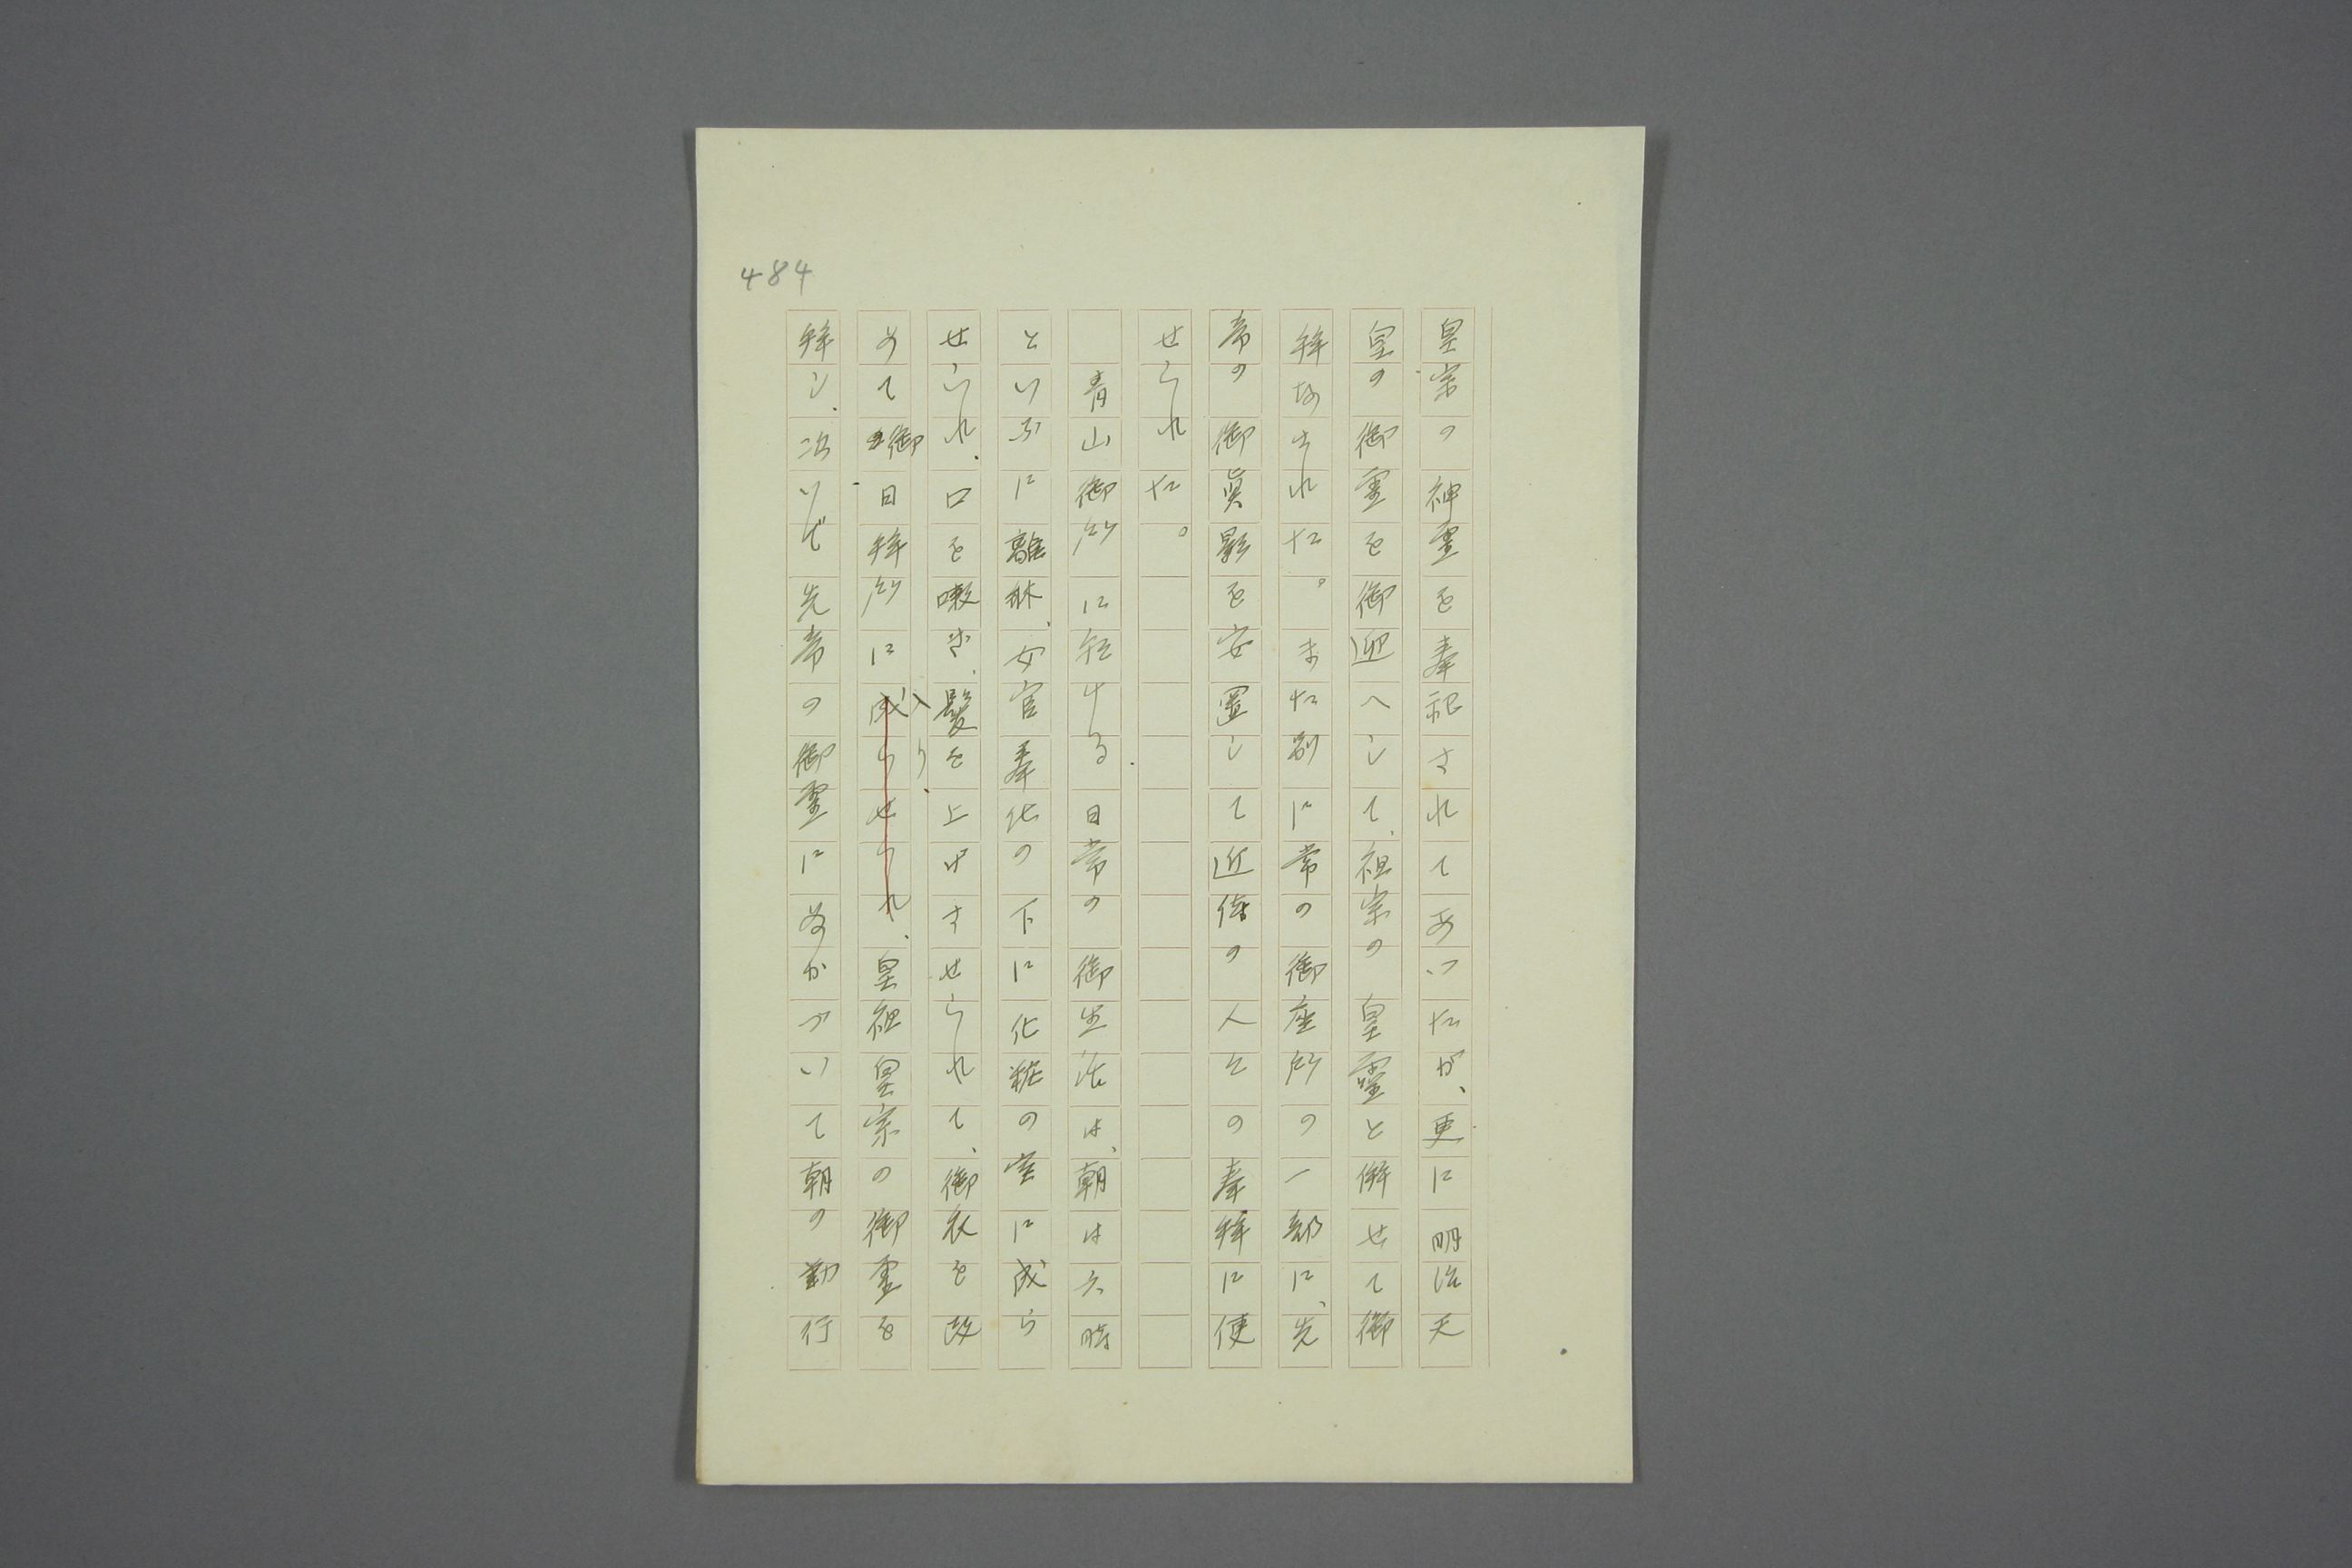 484
皇宗の神霊を奉祀されてあつたが、更に明治天
皇の御霊を御迎へして、祖宗の皇靈と併せて御
拝なされた。また別に常の御座所の一部に、先
帝の御眞影を安置して近侍の人々の奉拝に便
せられた。
青山御所に於ける日常の御生活は、朝は六時
といふに離牀、女官奉仕の下に化粧の室に成ら
せられ、口を嗽ぎ、髪を上げさせられて、御衣を改
めて御日拝所に入り、皇祖皇宗の御霊を
拝し、次いで先帝の御霊にぬかづいて朝の勤行